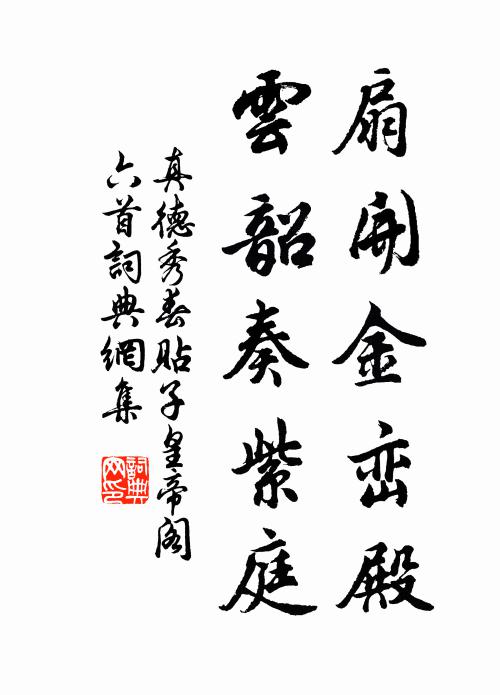 扇開金峦殿
雲韶奏紫庭
真德秀春贴子皇帝阁
六首詞典網集
詞典网印